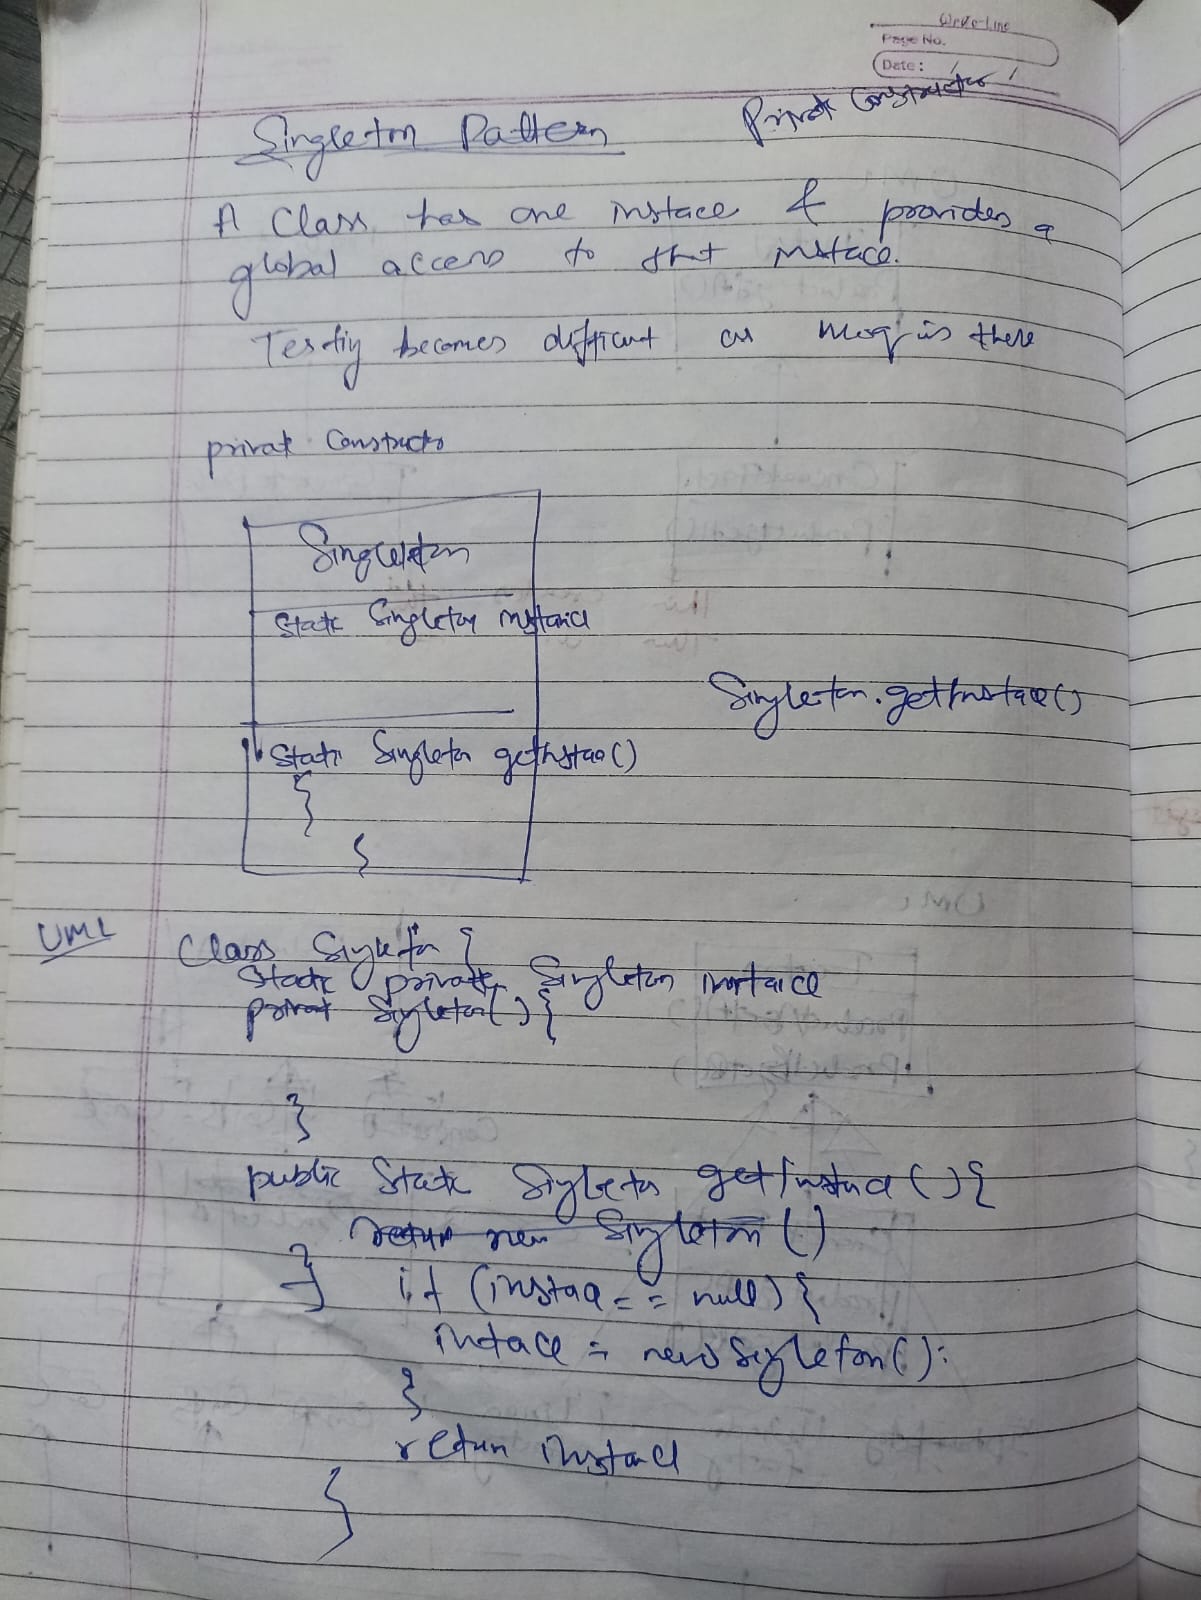 Write-Line
Page No.
Date: / /
Private Constructor
Singleton Pattern
A Class has one instace & provides a
global access to that instace.
Testing becomes difficult as is there
privat Constructo
Singleton
Static Singleton instance
Singleton.getInstace()
Static Singleton getInstace()
{
}
UML
Class Singleton {
Static private Singleton instance
privat Singleton() {
}
public Static Singleton getInstance() {
return new Singleton()
} if (instace == null) {
instace = new Singleton();
}
return instance
}